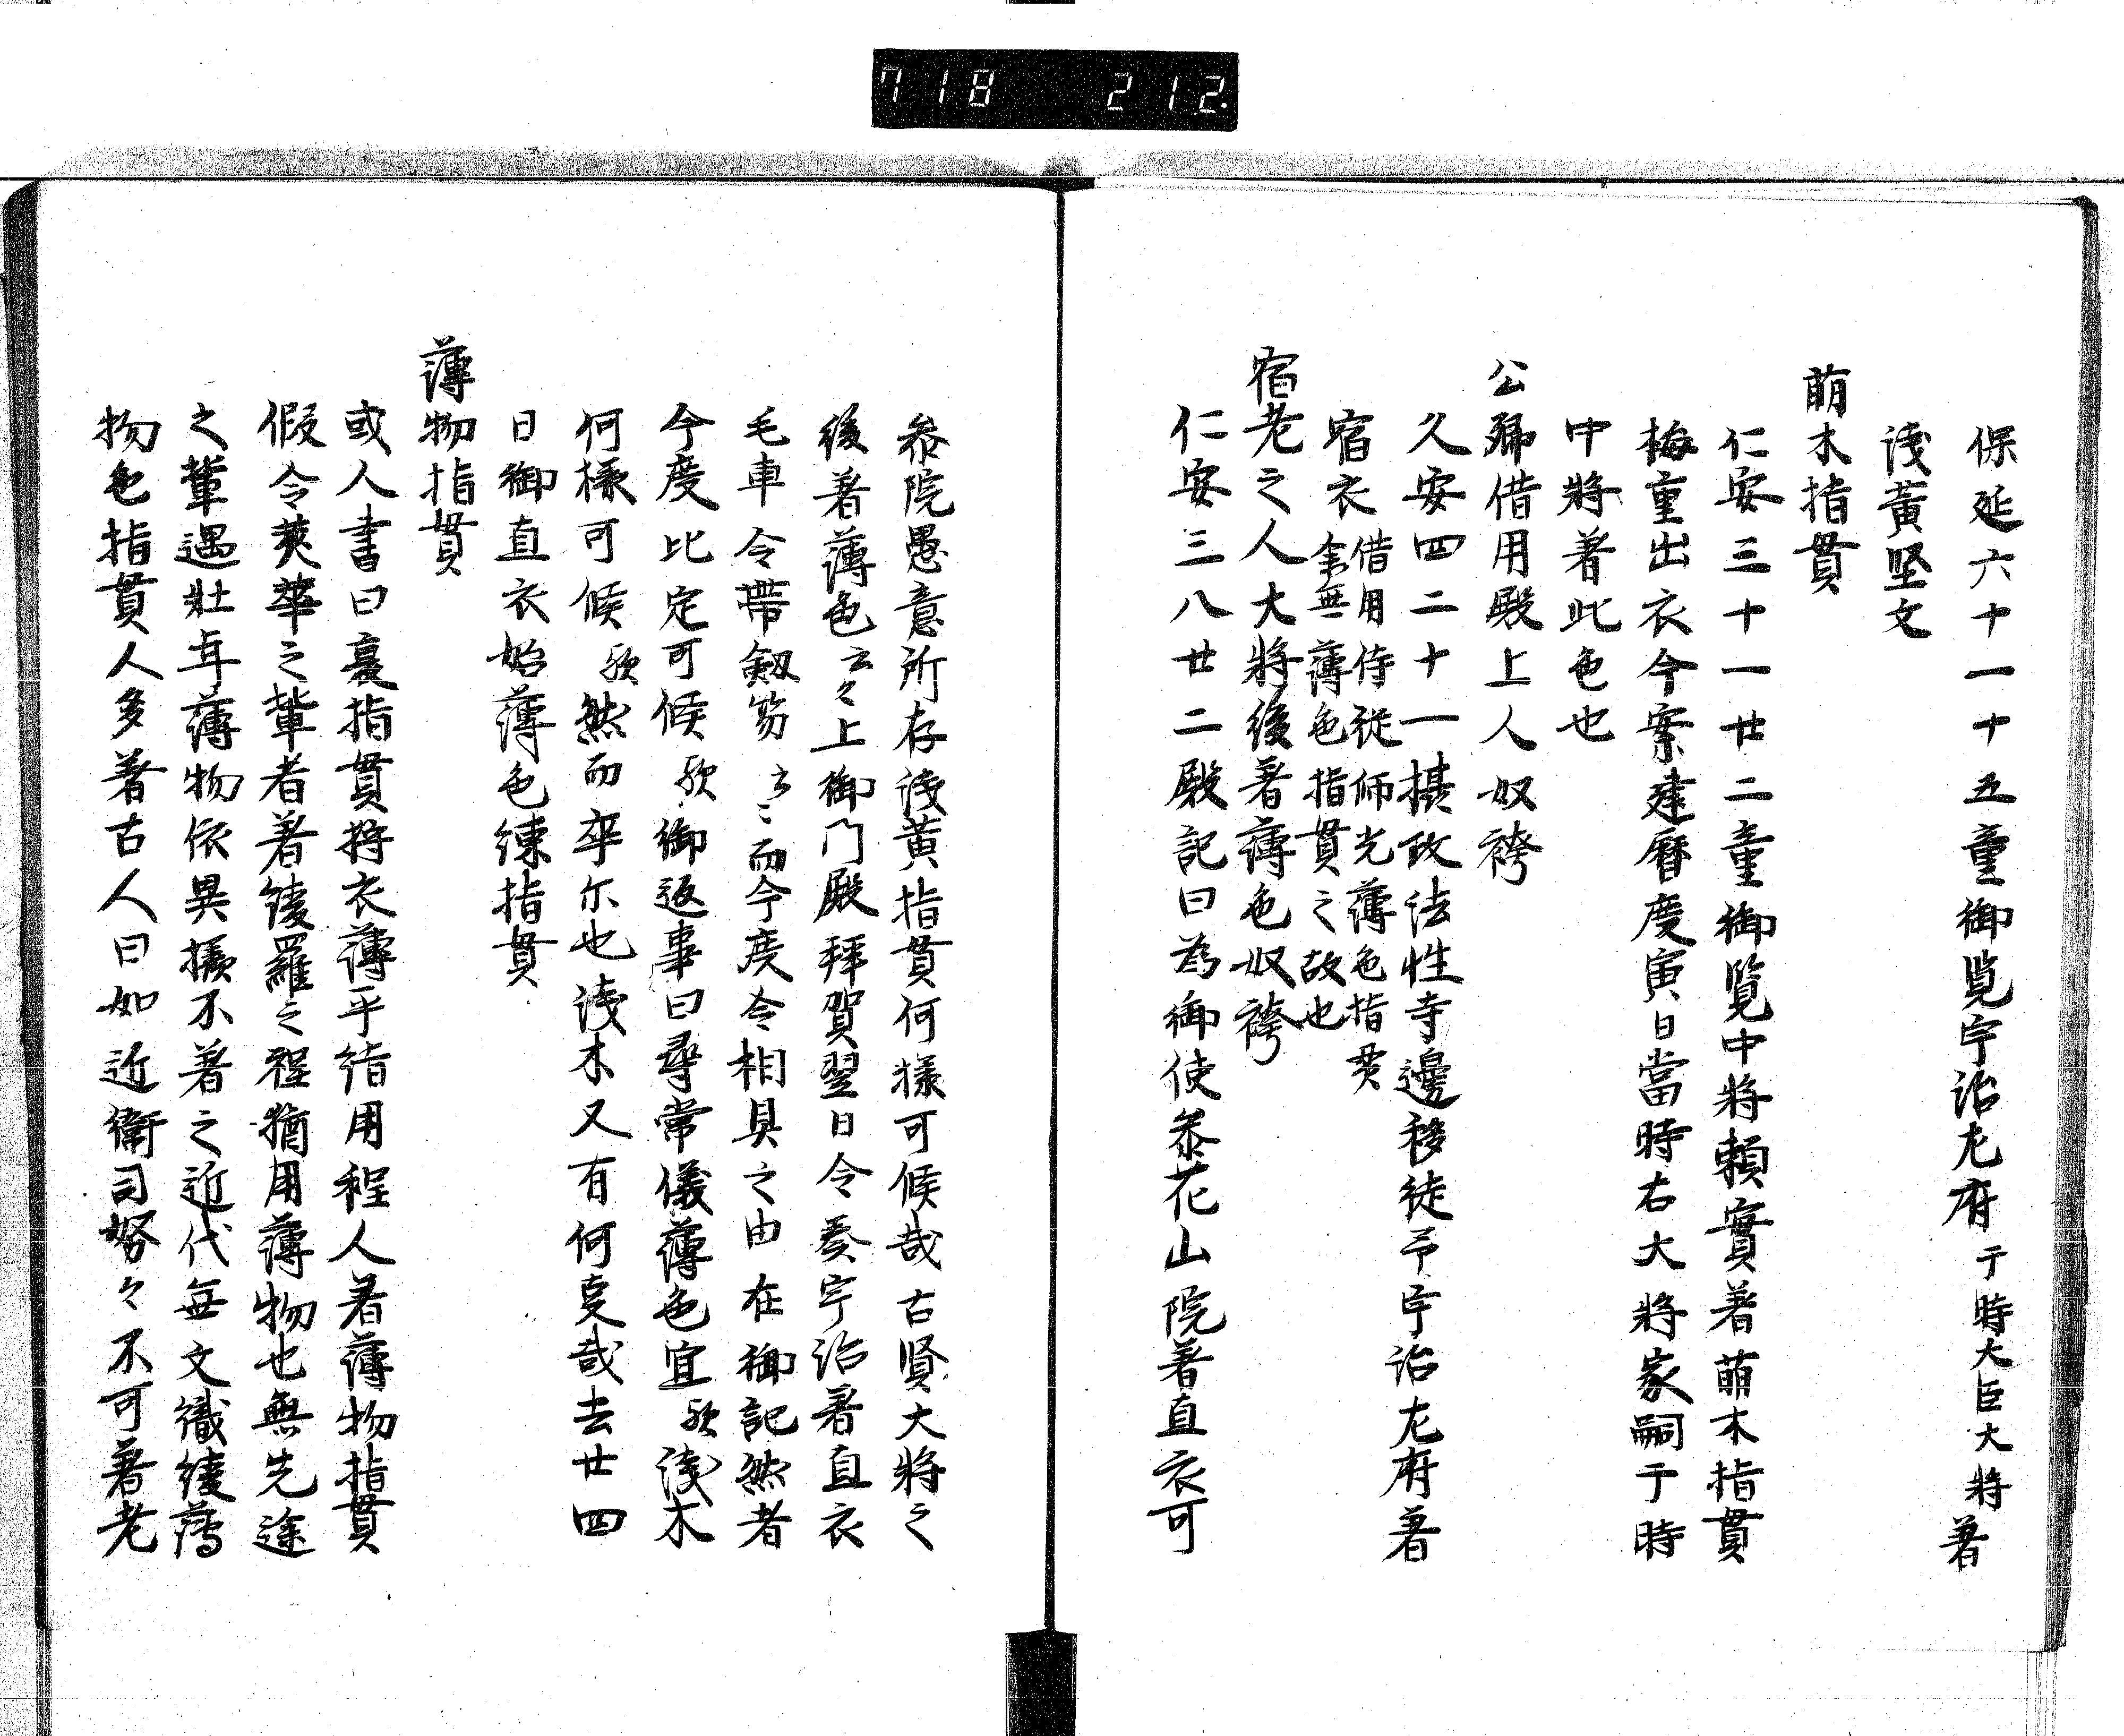 718 212
保延六十一十五童御覧宇治左府于時大臣大将著
浅黄堅文
萌木指貫
仁安三十一廿二童御覧中将頼實著萌木指貫
梅重出衣今案建暦度寅日當時右大将家嗣于時
中将著此色也
公卿借用殿上人奴袴
久安四二十一摂政法性寺邊移徙予宇治左府著
宿衣借用侍従師光薄色指貫
余無薄色指貫之故也
宿老之人大将後著薄色奴袴
仁安三八廿二殿記曰為御使参花山院著直衣可
参院愚意所存浅黄指貫何様可候哉古賢大将之
後著薄色云々上御門殿拝賀翌日令奏宇治著直衣
毛車令帯釼笏云々而今度令相具之由在御記然者
今度比定可候歟御返事曰尋常儀薄色宜歟浅木
何様可候歟然而卒尓也浅木又有何事哉去廿四
日御直衣始薄色練指貫
薄物指貫
或人書曰裏指貫狩衣薄平絹用程人著薄物指貫
假令英華之輩者著綾羅之程猶用薄物也無先途
之輩遇壮年薄物依異様不著之近代無文織綾薄
物色指貫人多著古人曰如近衛司努々不可著老